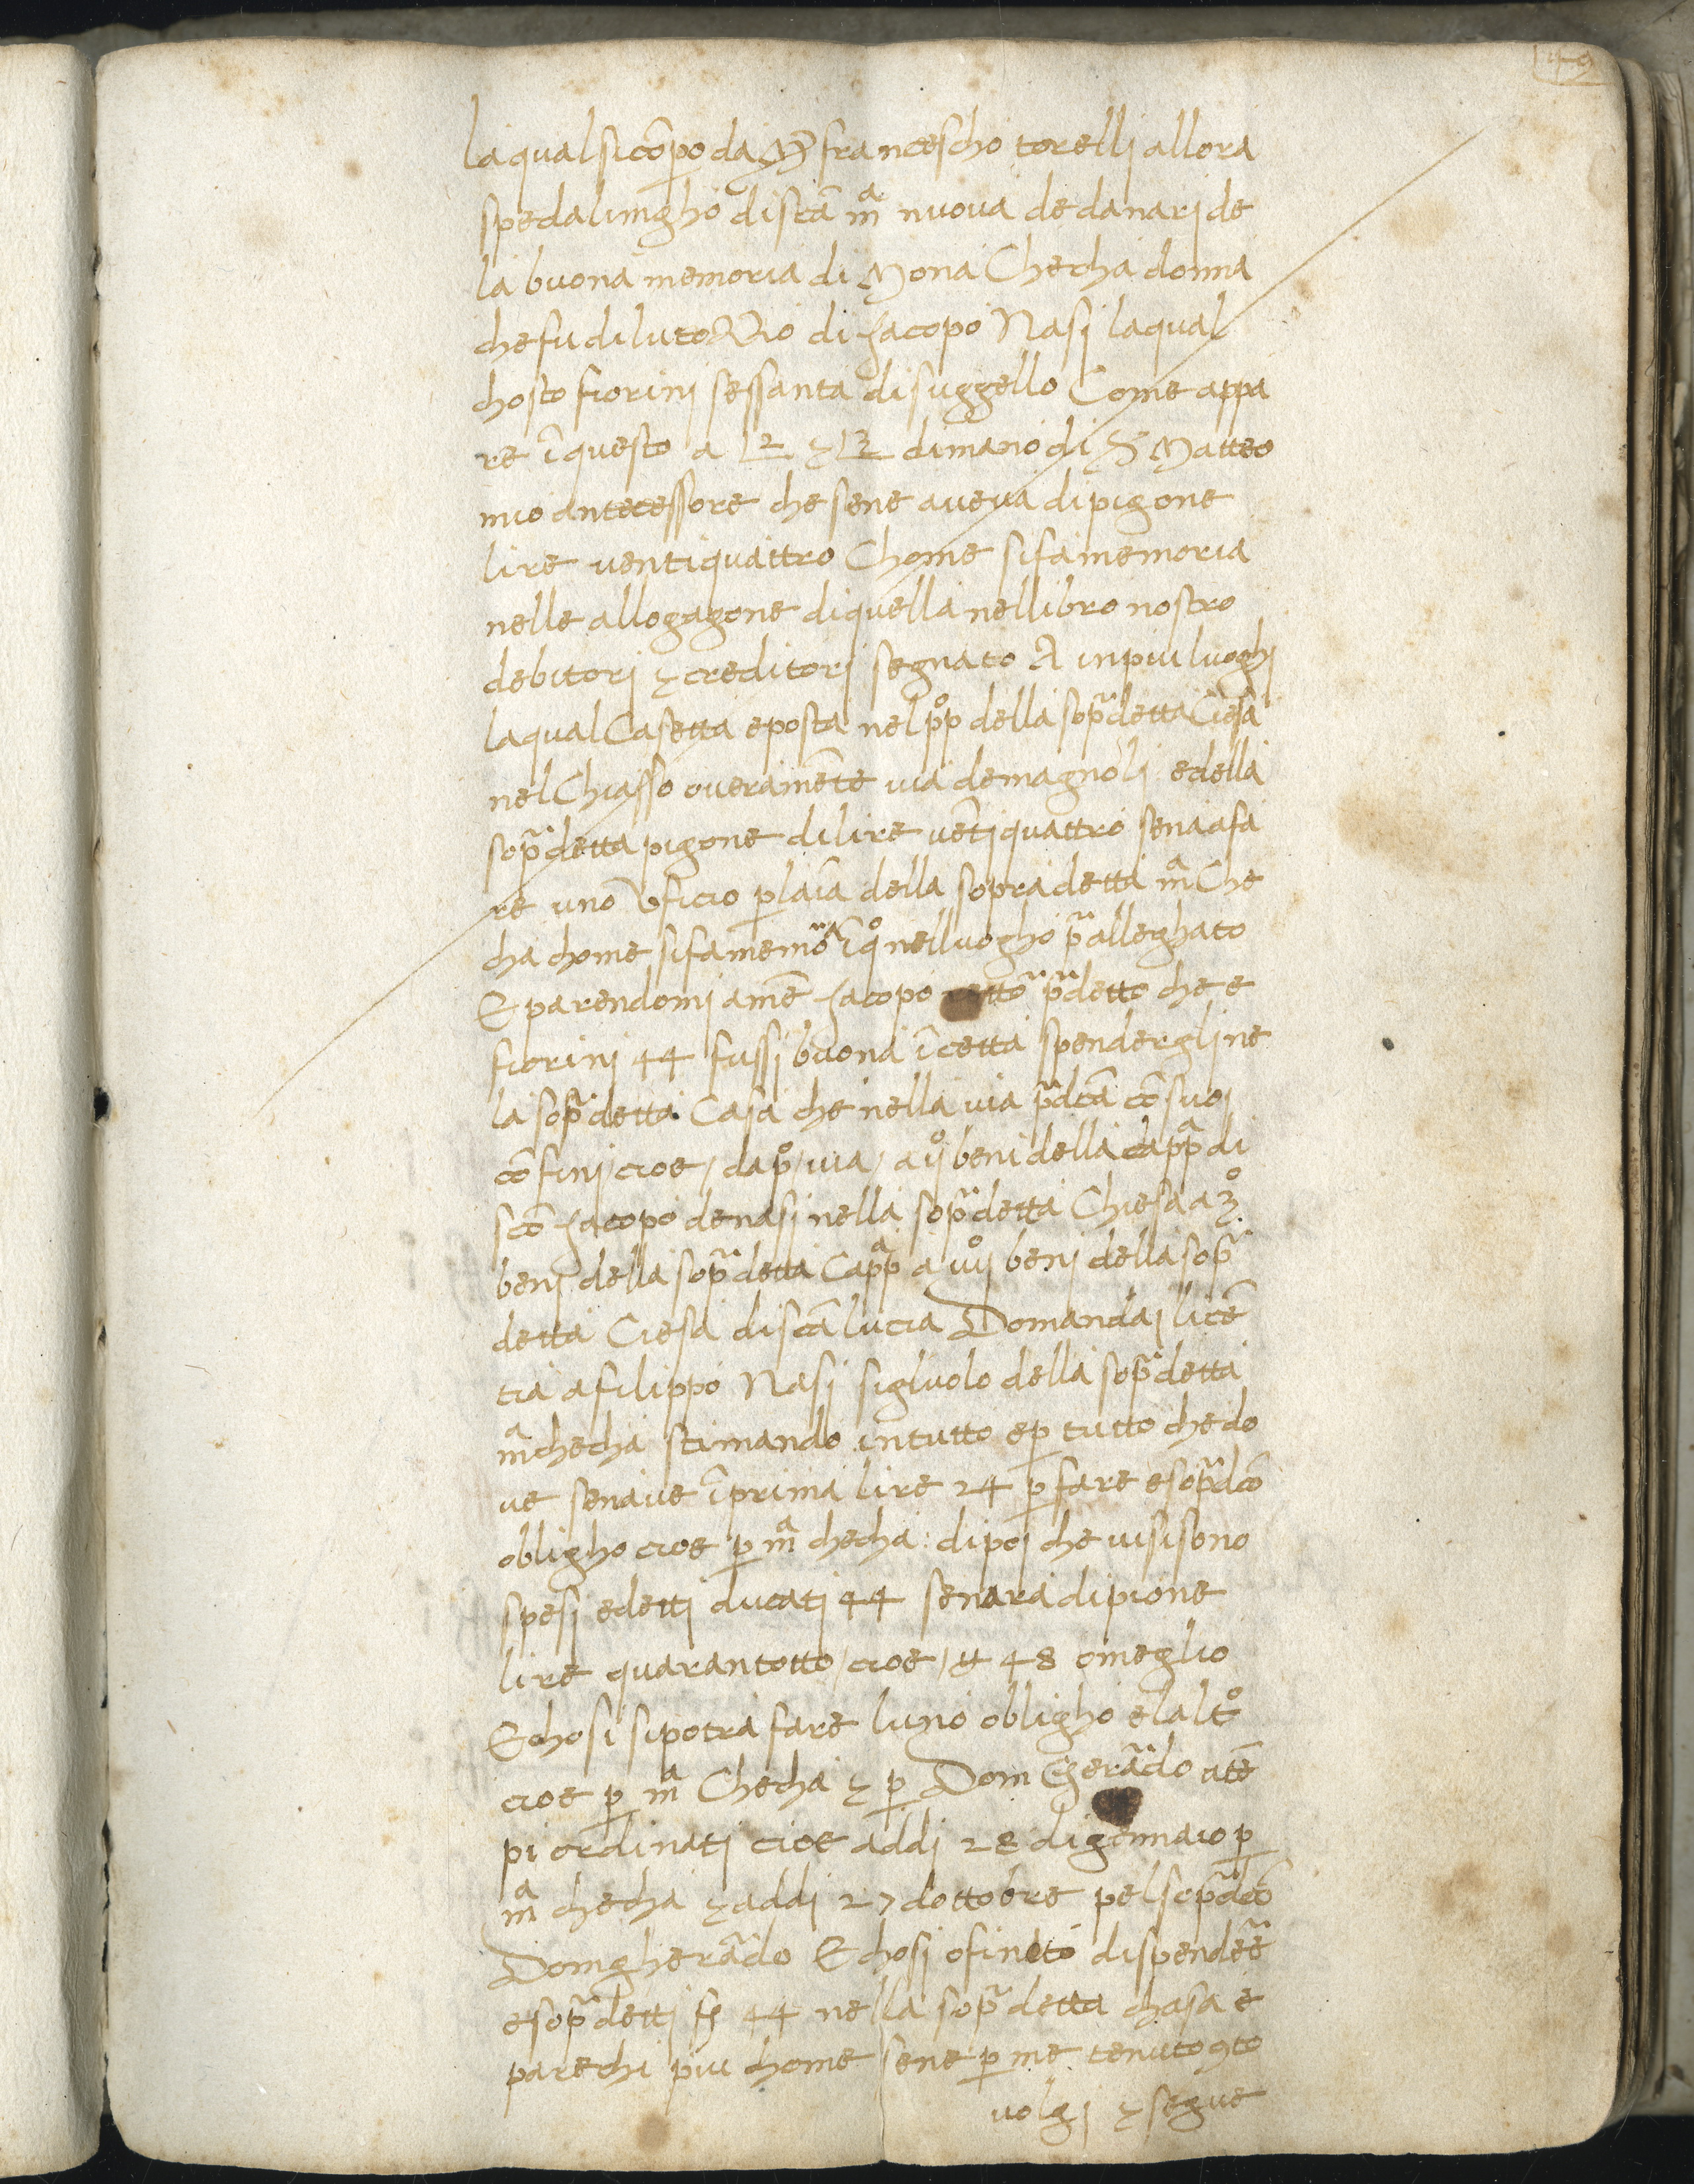 49
la qual si cõpo da Mr francescho torelli allora
spedalingho di scã mª nuova de danari de
la buona memoria di Mona Checha donna
che fu di lutozzo di Jacopo Nasi la qual
chosto fiorini sessanta di suggello Come appa
re ĩ questo a 12 & 13 di mano di S Matteo
mio antecessore che sene aveva di pigone
lire ventiquattro Chome si fa memoria
nelle allogagone di quella nel libro nostro
debitori & creditori segnato A in piu luoghi
la qual Casetta e posta nel pºp della soprª detta Ciesa
nel Chiasso overamẽte via de magnoli e della
soprª detta pigone di lire vẽtiquattro sena a fa
re uno Uficio p laĩa della sopra detta mª Che
cha chome si fa memoª ĩ qº nel luogho pª alleghato
E parendomi a me Jacopo rettoª pª detto che e
fiorini 44 fussi buona ĩcetta spendergli ne
la soprª detta Casa che nella via pª dcã cõ suoi
cõfini cioe / da pº / via / a ijº beni della cappª di
scõ Jacopo de nasi nella soprª detta Chiesa a 3º
beni della soprª detta Cappª a iiijº beni della soprª
detta Ciesa di scã lucia Domandai licẽ
tia a filippo Nasi figluolo della soprª detta
mª checha stimando in tutto e p tutto che do
ve senave ĩ prima lire 24 p fare e soprª dcõ
obligho cioe p mª checha : di poi che vi si sono
spesi e detti ducati 44 senara di pione
lire quarantotto / cioe / ₶ 48 o meglio
E chosi si potra fare luno obligho e laltº
cioe p mª Checha & p Dom Gherãdo a tẽ
pi ordinati cioe addi 28 di gennaio p
mª checha & addi 27 dottobre pel soprª dcõ
Dom gherãdo E chosi o finito di spendeẽ
e soprª detti f 44 nella soprª detta chasa e
parechi piu chome sene p me tenuto 9to
volgi & segue